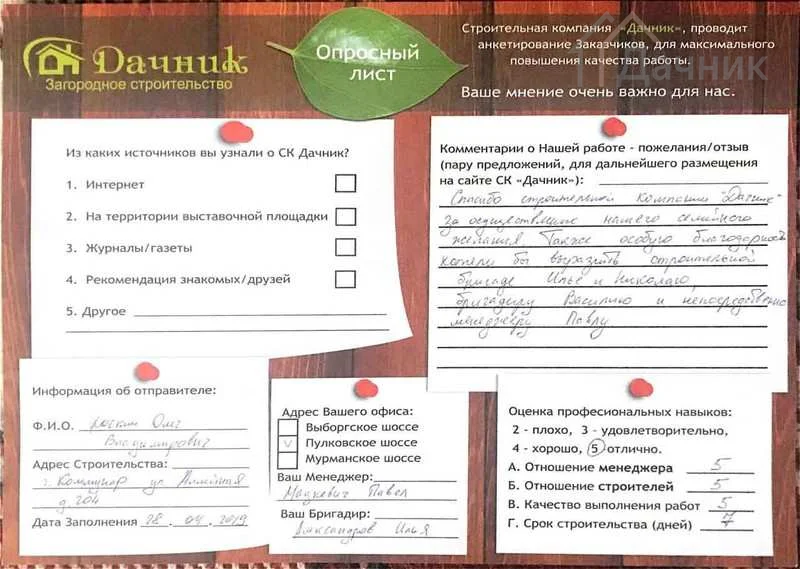 Дачник
Загородное строительство
Опросный
лист
Строительная компания «Дачник», проводит
анкетирование Заказчиков, для максимального
повышения качества работы.
Ваше мнение очень важно для нас.
Дачник
Из каких источников вы узнали о СК Дачник?
1. Интернет
2. На территории выставочной площадки
3. Журналы/газеты
4. Рекомендация знакомых/друзей
5. Другое
Комментарии о Нашей работе - пожелания/отзыв
(пару предложений, для дальнейшего размещения
на сайте СК «Дачник»):
Спасибо строительной компании "Дачник"
За осуществление нашего семейного
желания. Также особую благодарность
хотели бы выразить строительной
бригаде Илье и Николаю,
бригадиру Василию и непосредственно
менеджеру Павлу
Информация об отправителе:
Ф.И.О. Олег
Владимирович
Адрес Строительства:
г. Коммунар ул
д. 20А
Дата Заполнения 28 . 04 . 2019
Адрес Вашего офиса:
Выборгское шоссе
v Пулковское шоссе
Мурманское шоссе
Ваш Менеджер:
Мацкевич Павел
Ваш Бригадир:
Александров Илья
Оценка професиональных навыков:
2 - плохо, 3 - удовлетворительно,
4 - хорошо, 5 отлично.
А. Отношение менеджера 5
Б. Отношение строителей 5
В. Качество выполнения работ 5
Г. Срок строительства (дней) 7